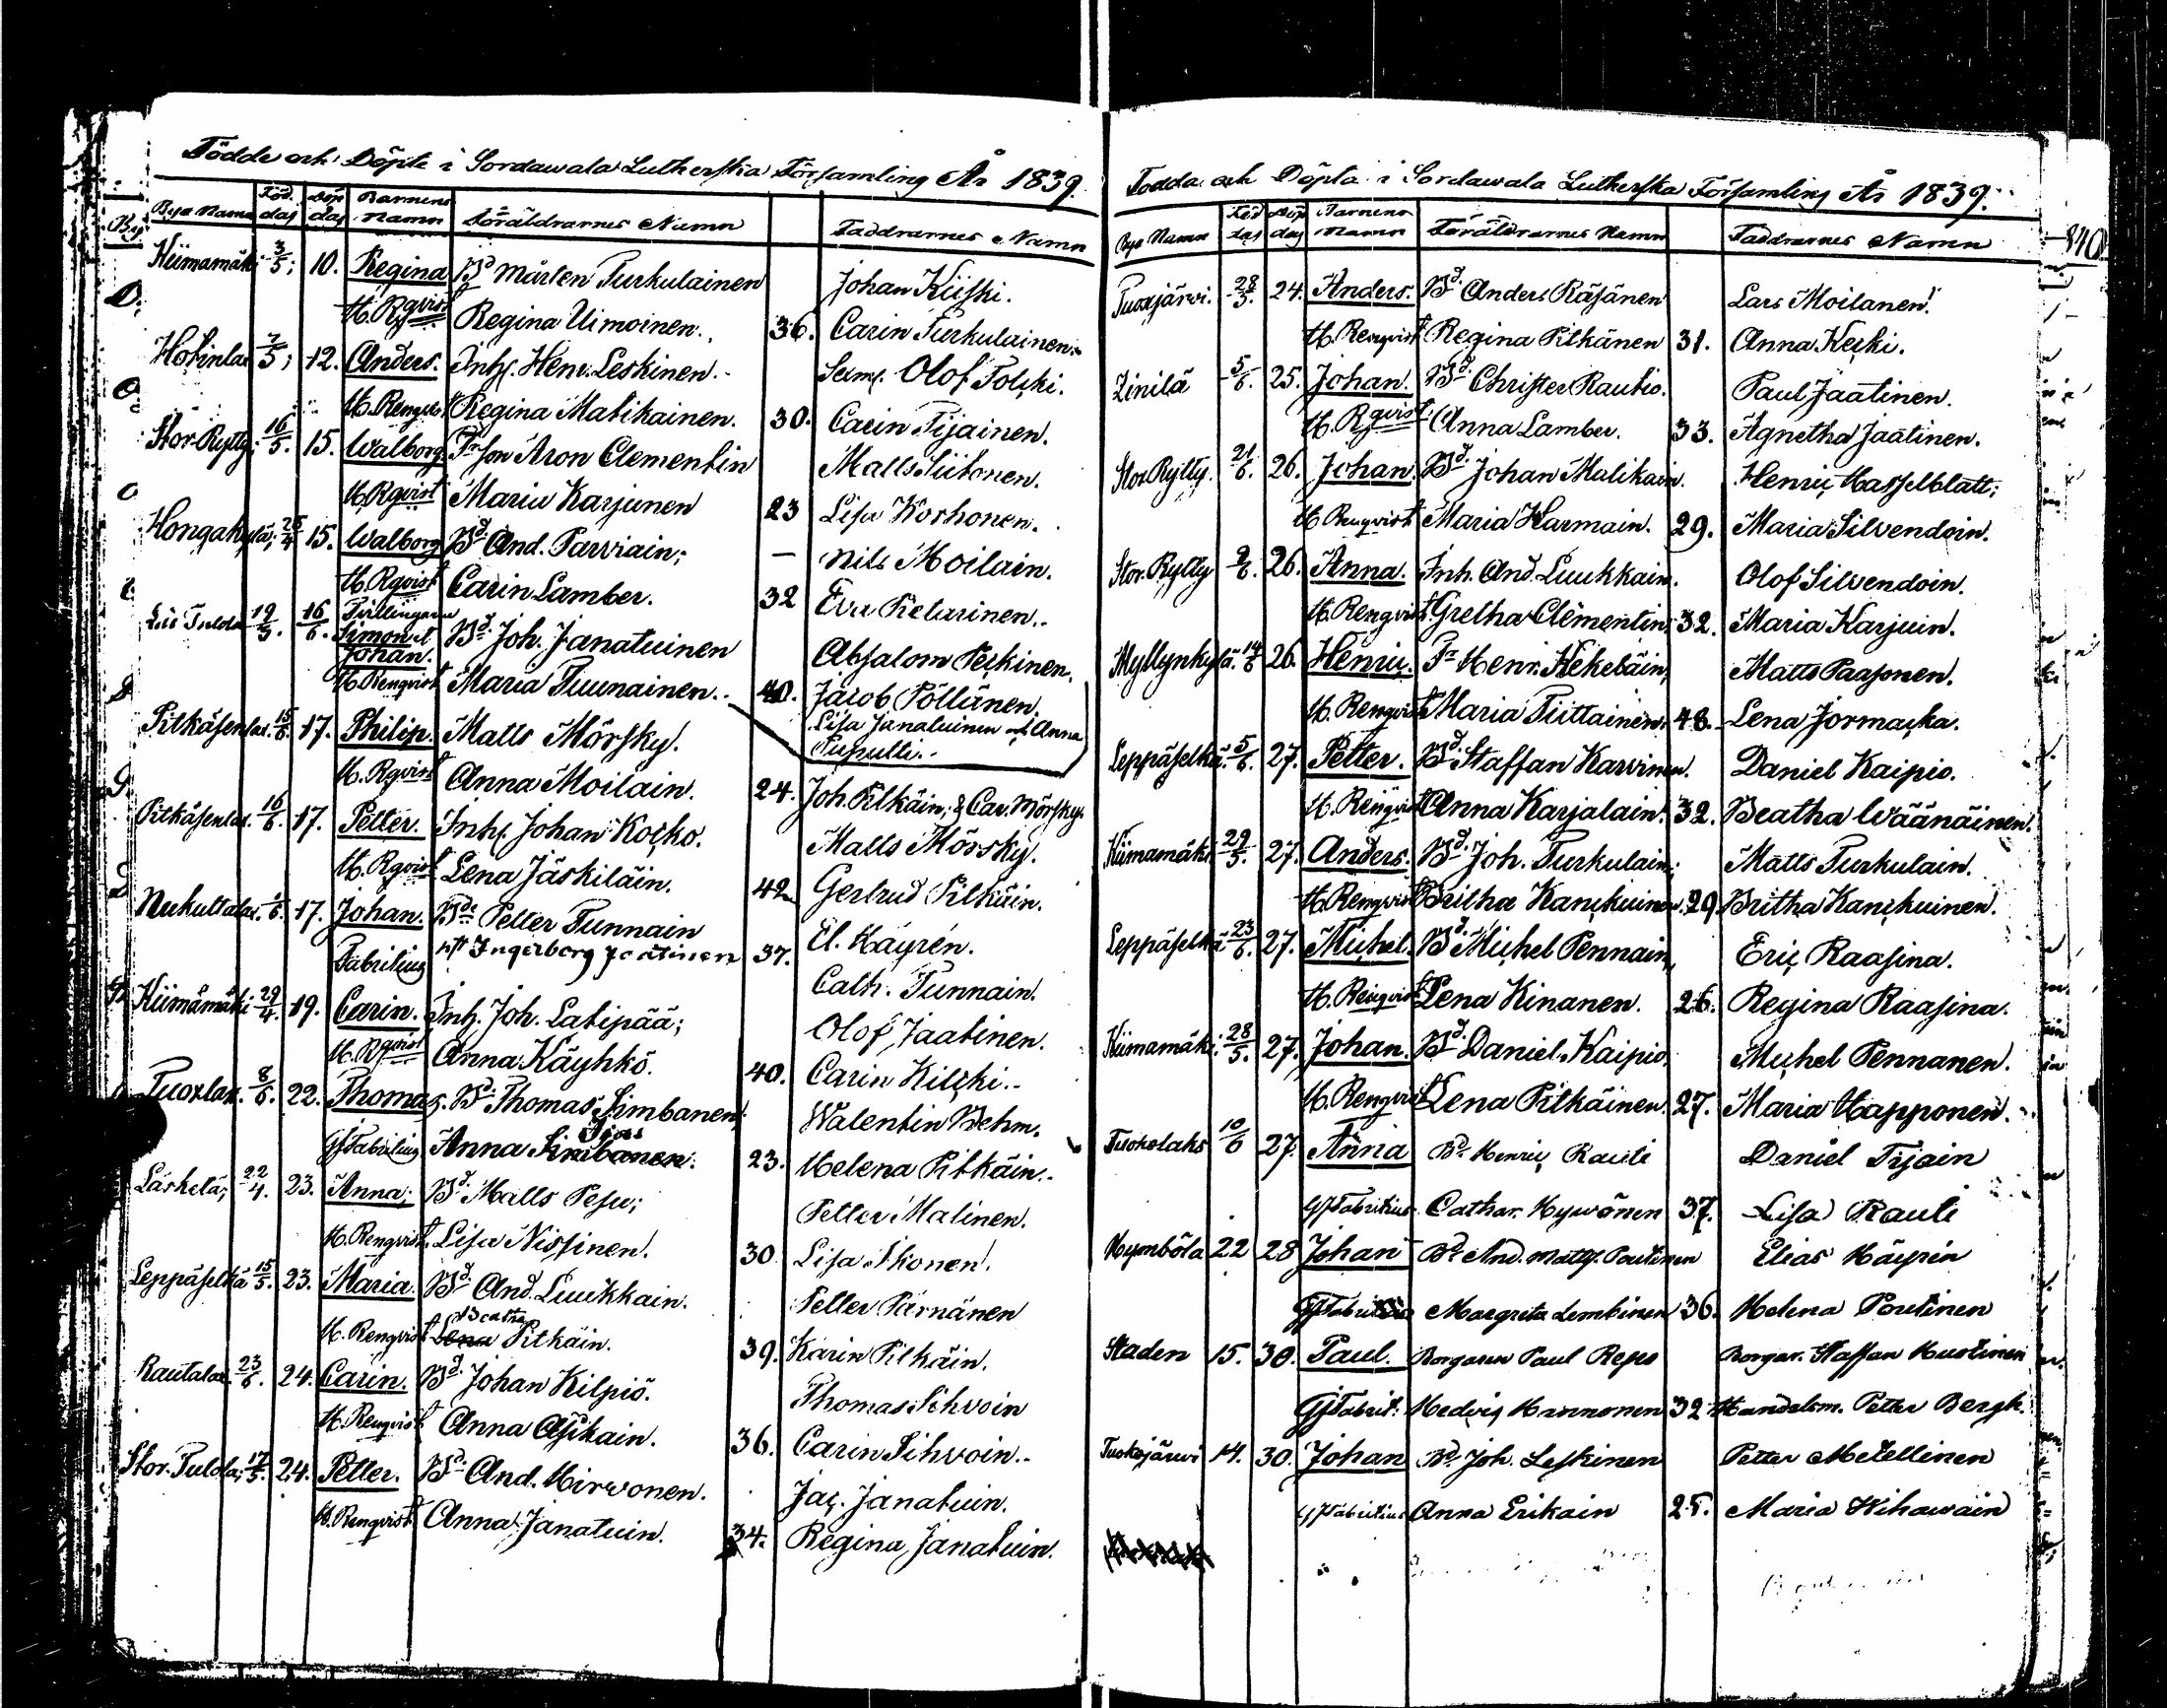 Födde och Döpte i Sordawala Lutherska Församling År 1839.
Bye Namn Föd. dag Döp dag Barnens Namn Föräldrarnes Namn Faddrarnes Namn
Kiimamäki 3/5; 10. Regina Bd Mårten Turkulainen Johan Kiiski.
H. Rqvist Regina Uimoinen. 36. Carin Turkulainen.
Hotinlax 7/5; 12. Anders. Inh. Henr. Leskinen. Olof Tolski.
H. Renqvist Regina Matikainen. 30. Carin Tijainen.
Stor-Rytty; 16/5. 15. Walborg Aron Clementin Matts Siitonen.
H. Rqvist Maria Karjunen 23 Lisa Korhonen.
Hongakylä; 25/4 15. Walborg Bd And. Parviain; — Nils Moilain.
H. Rqvist Carin Lamber. 32 Eva Pietarinen.
Tulola 19/5. 16/6. Tvillingarne Simon et Johan. Bd Joh. Janatuinen Absalom Peskinen.
H. Renqvist Maria Tuunainen. 40. Jacob Pöllänen.
Lisa Janatuinen och Anna
Puputti.
Pitkäsenlax. 15/6. 17. Philip. Matts Mörsky.
H. Rqvist Anna Moilain. 24. Joh. Pitkäin; & Car. Mörsky.
Pitkäsenlax. 16/6. 17. Petter. Inh. Johan Koisko. Matts Mörsky.
H. Rqvist Lena Jäskiläin. 42 Gertrud Pitkäin.
Nukuttalax. 17. Johan. Bd Petter Tunnain El. Käyrén.
Fabritius Ingerborg Jaatinen 37. Cath. Tunnain.
Kiimämäki 29/4. 19. Carin. Inh. Joh. Latipää; Olof Jaatinen.
H. Rqvist Anna Käyhkö. 40. Carin Kilski.
Tuoxlax. 8/6. 22. Thomas. Bd Thomas Simbanen; Walentin Behm.
GjFabritius Anna 23. Helena Pitkäin.
Läskelä; 22/4. 23. Anna; Bd Matts Pesu; Petter Malinen.
H. Renqvist Lisa Nissinen. 30 Lisa Ikonen.
Leppäselkä 15/5. 23. Maria. Bd And. Luukkain. Petter Pärnänen
H. Renqvist Beatha Pitkäin. 39. Karin Pitkäin.
Rautalax. 23/6. 24. Carin. Bd Johan Kilpiö. Thomas Sihvoin
H. Renqvist Anna Asikain. 36. Carin Sihvoin.
Stor-Tulola; 17/5. 24. Petter. Bd And. Hirvonen. Jac. Janatuin.
H. Renqvist Anna Janatuin. 34. Regina Janatuin.
Födda och Döpta i Sordawala Lutherska Församling År 1839.
Bye Namn Föd dag Döp dag Barnens Namn Föräldrarnes Namn Faddrarnes Namn
28/5. 24. Anders. Bd Anders Räsänen Lars Moilanen.
H. Renqvist Regina Pitkänen 31. Anna Keski.
Zinilä 5/6. 25. Johan. Bd Christer Rautio. Paul Jaatinen.
H. Rqvist Anna Lamber. 33. Agnetha Jaatinen.
Stor Rytty. 21/6. 26. Johan. Bd Johan Matikain. Henric Hasselblatt;
H. Renqvist Maria Harmain. 29. Maria Silvendoin.
Stor. Rytty 9/6. 26. Anna. Inh. And. Luukkain. Olof Silvendoin.
H. Renqvist Gretha Clementin; 32. Maria Karjuin.
Myllynkylä. 14/6 26. Henric. Henr. Kekeläin; Matts Paasonen.
H. Renqvist Maria Tiittainen. 43. Lena Jormacka.
Leppäselkä. 5/6. 27. Petter. Bd Staffan Karvinen. Daniel Kaipio.
H. Renqvist Anna Karjalain. 32. Beatha Wäänäinen.
Kiimamäki 29/5. 27. Anders. Bd Joh. Turkulain; Matts Turkulain.
H. Renqvist Britha Kanckuinen. 29. Britha Kanckuinen.
Leppäselkä 23/6. 27. Michel. Bd Michel Pennain, Eric Raasina.
H. Renqvist Lena Kinanen. 26. Regina Raasina.
Kiimamäki. 28/5. 27. Johan. Bd Daniel Kaipio. Michel Pennanen.
H. Renqvist Lena Pitkäinen. 27. Maria Happonen.
Tuokolaks 10/6 27. Anna Bd Henric Rauti Daniel Tijain
GjFabritius Cathar. Hyvönen 37. Lisa Rauti
Kymböla 22 28 Johan Bd And. Matts. Poutinen Elias Käyrén
GjFabritius Margreta Lembinen 36. Helena Poutinen
Staden 15. 30. Paul. Borgaren Paul Reps Borgar. Staffan Hustinen
GjFabrit: Hedvig Hannonen 32. Handelsm. Petter Bergh.
Tuokojärwi 14. 30. Johan Bd Joh. Leskinen Petter Metellinen
GjFabritius Anna Erikain 25. Maria Hihavain